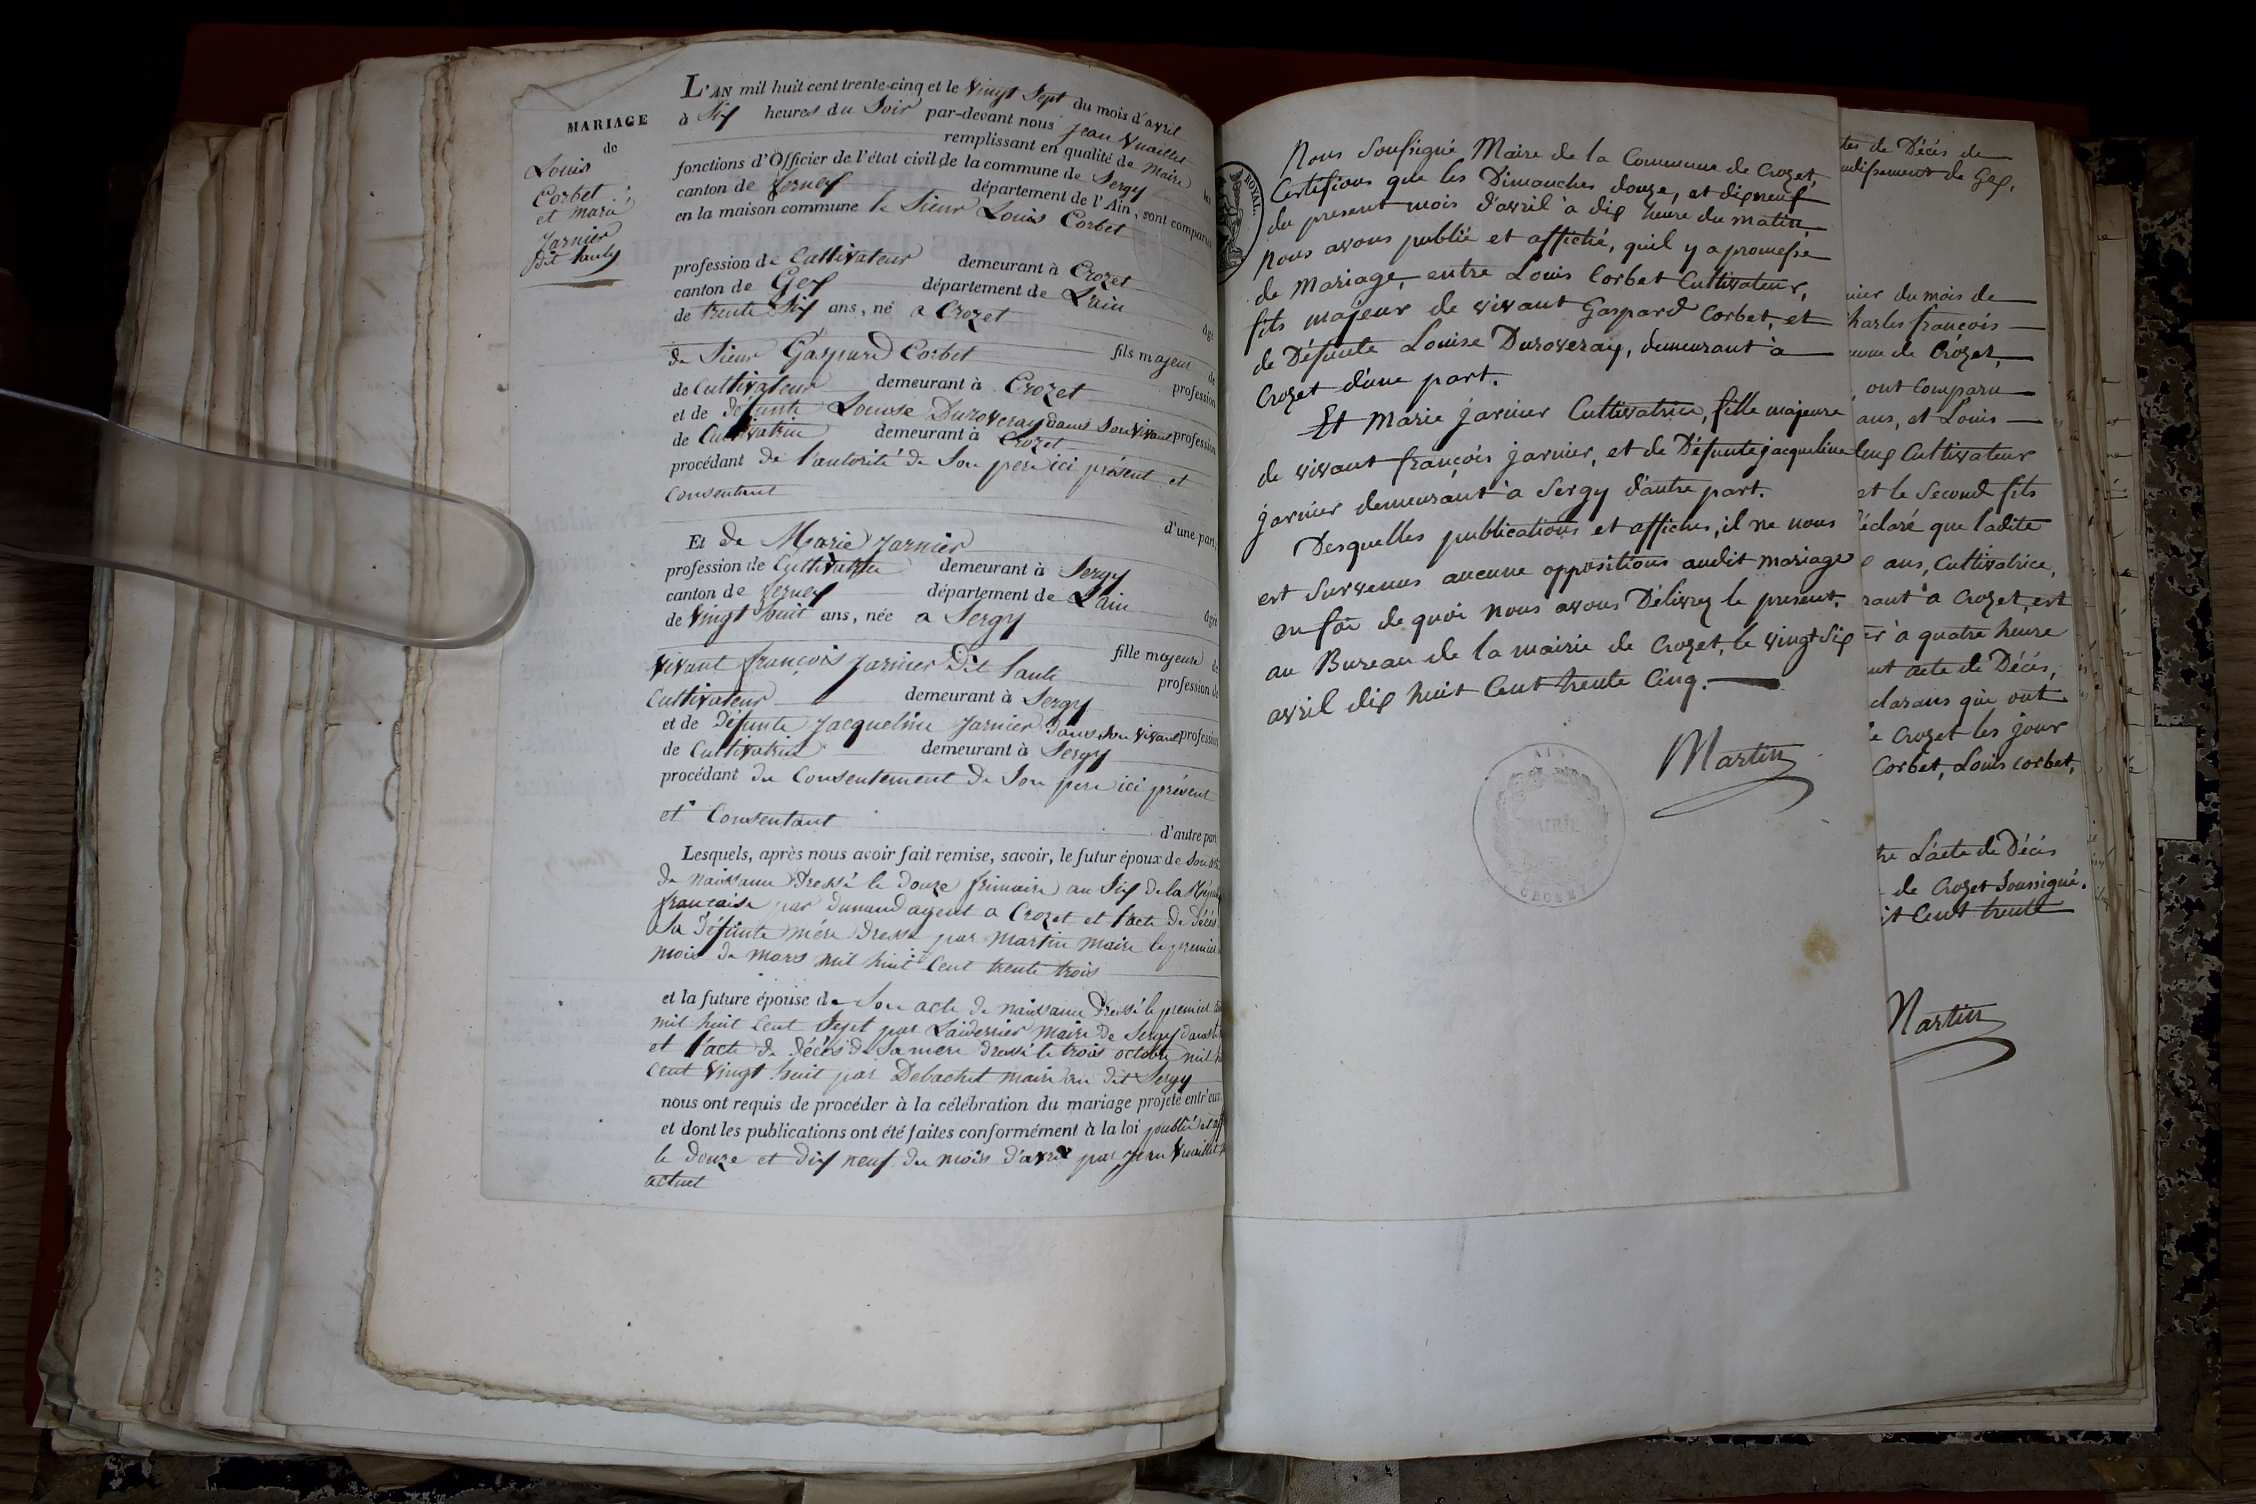 MARIAGE
de
Louis
Corbet
et marie
Jarnier
dit
L'AN mil huit cent trente-cinq et le Vingt Sept du mois d'avril
à Six heures du Soir par-devant nous Jean Vuaillet
remplissant en qualité de Maire les
fonctions d'Officier de l'état civil de la commune de Sergy
canton de ferney département de l'Ain, sont comparus
en la maison commune le Sieur Louis Corbet
profession de Cultivateur demeurant à Crozet
canton de Gex département de L'ain âgé
de trente Six ans, né a Crozet
fils majeur de
de Sieur Gaspard Corbet profession
de Cultivateur demeurant à Crozet
et de défunte Louise Duroveray dans Son vivant profession
de Cultivatrice demeurant à Crozet
procédant de l'autorité de Son pere ici présent et
Consentant
d'une part,
Et de Marie Jarnier
profession de Cultivatrice demeurant à Sergy
canton de ferney département de L'ain âgée
de Vingt huit ans, née a Sergy
fille majeure de
Vivant françois Jarnier Dit profession de
Cultivateur demeurant à Sergy
et de Défunte Jacqueline Jarnier Dans Son vivant profession
de Cultivatrice demeurant à Sergy
procédant du Consentement de Son pere ici présent
et Consentant
d'autre part
Lesquels, après nous avoir fait remise, savoir, le futur époux de Son acte
de naissance Dressé le douze frimaire an Six de la
française par dunand agent a Crozet et l'acte de Décès
de Sa Défunte mére Dressé par Martin Maire le premier
mois de mars mil huit Cent trente trois
et la future épouse de Son acte de naissance Dressé le premier
mil huit Cent Sept par maire De Sergy
et l'acte de décés de Sa mere dressé le trois octobre mil
Cent Vingt huit par maire au dit Sergy
nous ont requis de procéder à la célébration du mariage projeté entr'eux
et dont les publications ont été faites conformément à la loi publié et
le douze et dix neuf du mois d'avril par Jean Vuaillet
actuel
Nous Soussigné Maire de la Commune de Crozet,
Certifions que les Dimanches douze, et dixneuf
du present mois d'avril à dix heure du matin,
Nous avons publié et affiché, quil y a promesse
de Mariage, entre Louis Corbet Cultivateur,
fils majeur de vivant Gaspard Corbet, et
de Défunte Louise Duroveray, demeurant à
Crozet d'une part.
Et Marie jarnier Cultivatrice, fille majeure
de vivant françois jarnier, et de Défunte jacqueline
jarnier demeurant à Sergy d'autre part.
Desquelles publications et affiches, il ne nous
est Survenus aucune oppositions audit mariage
en foi de quoi nous avons Délivrez le present.
au Bureau de la mairie de Crozet, le vingt Six
avril dix huit Cent trente Cinq.
Martin
ROYAL.
AIN
MAIRIE
CROZET
tes de Décès de
ndissement de Gex,
nier du mois de
harles françois
de Crozet,
ont Comparu
ans, et Louis
Cultivateur
et le Second fils
éclaré que ladite
ans, Cultivatrice,
rant à Crozet, est
à quatre heure
nt acte de Décès,
clarans qui ont
Crozet les jour
Corbet, Louis Corbet,
L'acte de Décès
de Crozet Soussigné.
it Cent trente
Martin